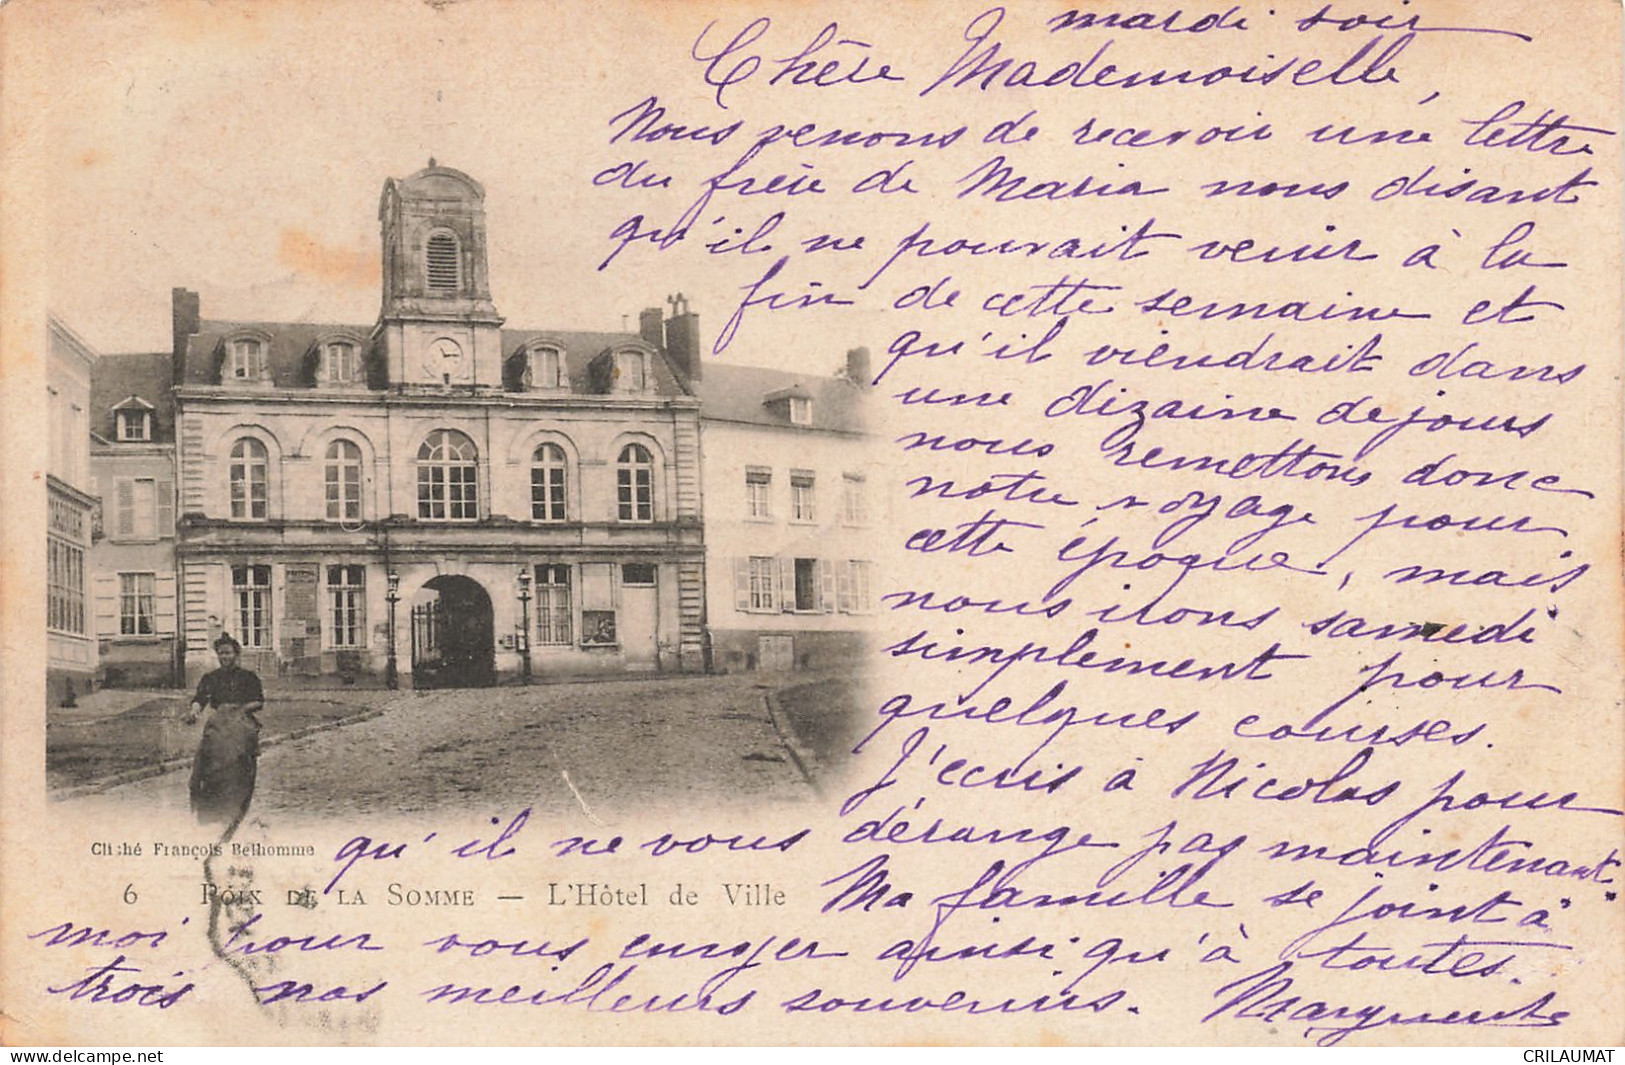 mardi soir
Chère Mademoiselle,
Nous venons de recevoir une lettre
du frère de Maria nous disant
qu'il ne pouvait venir à la
fin de cette semaine et
qu'il viendrait dans
une dizaine de jours
nous remettons donc
notre voyage pour
cette époque, mais
nous irons samedi
simplement pour
quelques courses.
J'écris à Nicolas pour
qu'il ne vous dérange pas maintenant.
Ma famille se joint à
moi pour vous envoyer ainsi qu'à toutes
trois nos meilleurs souvenirs. Marguerite
Cliché François Belhomme
6 POIX DE LA SOMME — L'Hôtel de Ville
www.delcampe.net
CRILAUMAT